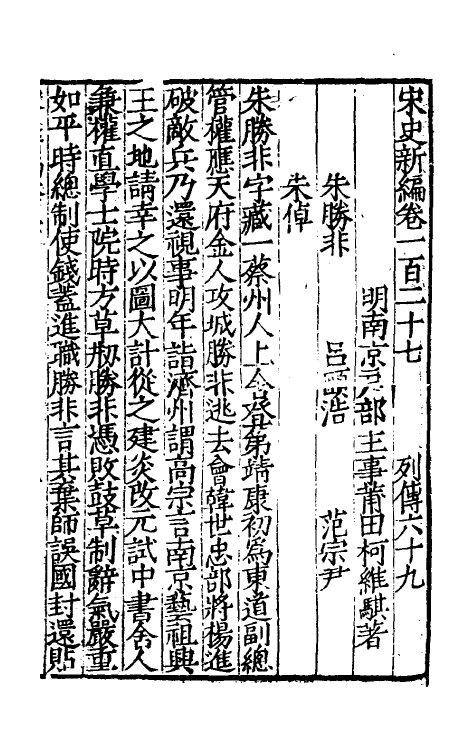 宋史新編卷一百二十七　列傳六十九
明南京戶部主事莆田柯維騏著
朱勝非　呂頤浩　范宗尹
朱倬
朱勝非字藏一蔡州人上舍登第靖康初爲東道副總
管權應天府金人攻城勝非逃去會韓世忠部將楊進
破敵兵乃還視事明年詣濟州謂高宗言南京藝祖興
王之地請幸之以圖大計從之建炎改元試中書舍人
兼權直學士院時方草刱勝非憑敗鼓草制辭氣嚴重
如平時總制使錢蓋進職勝非言其棄師誤國封還貼